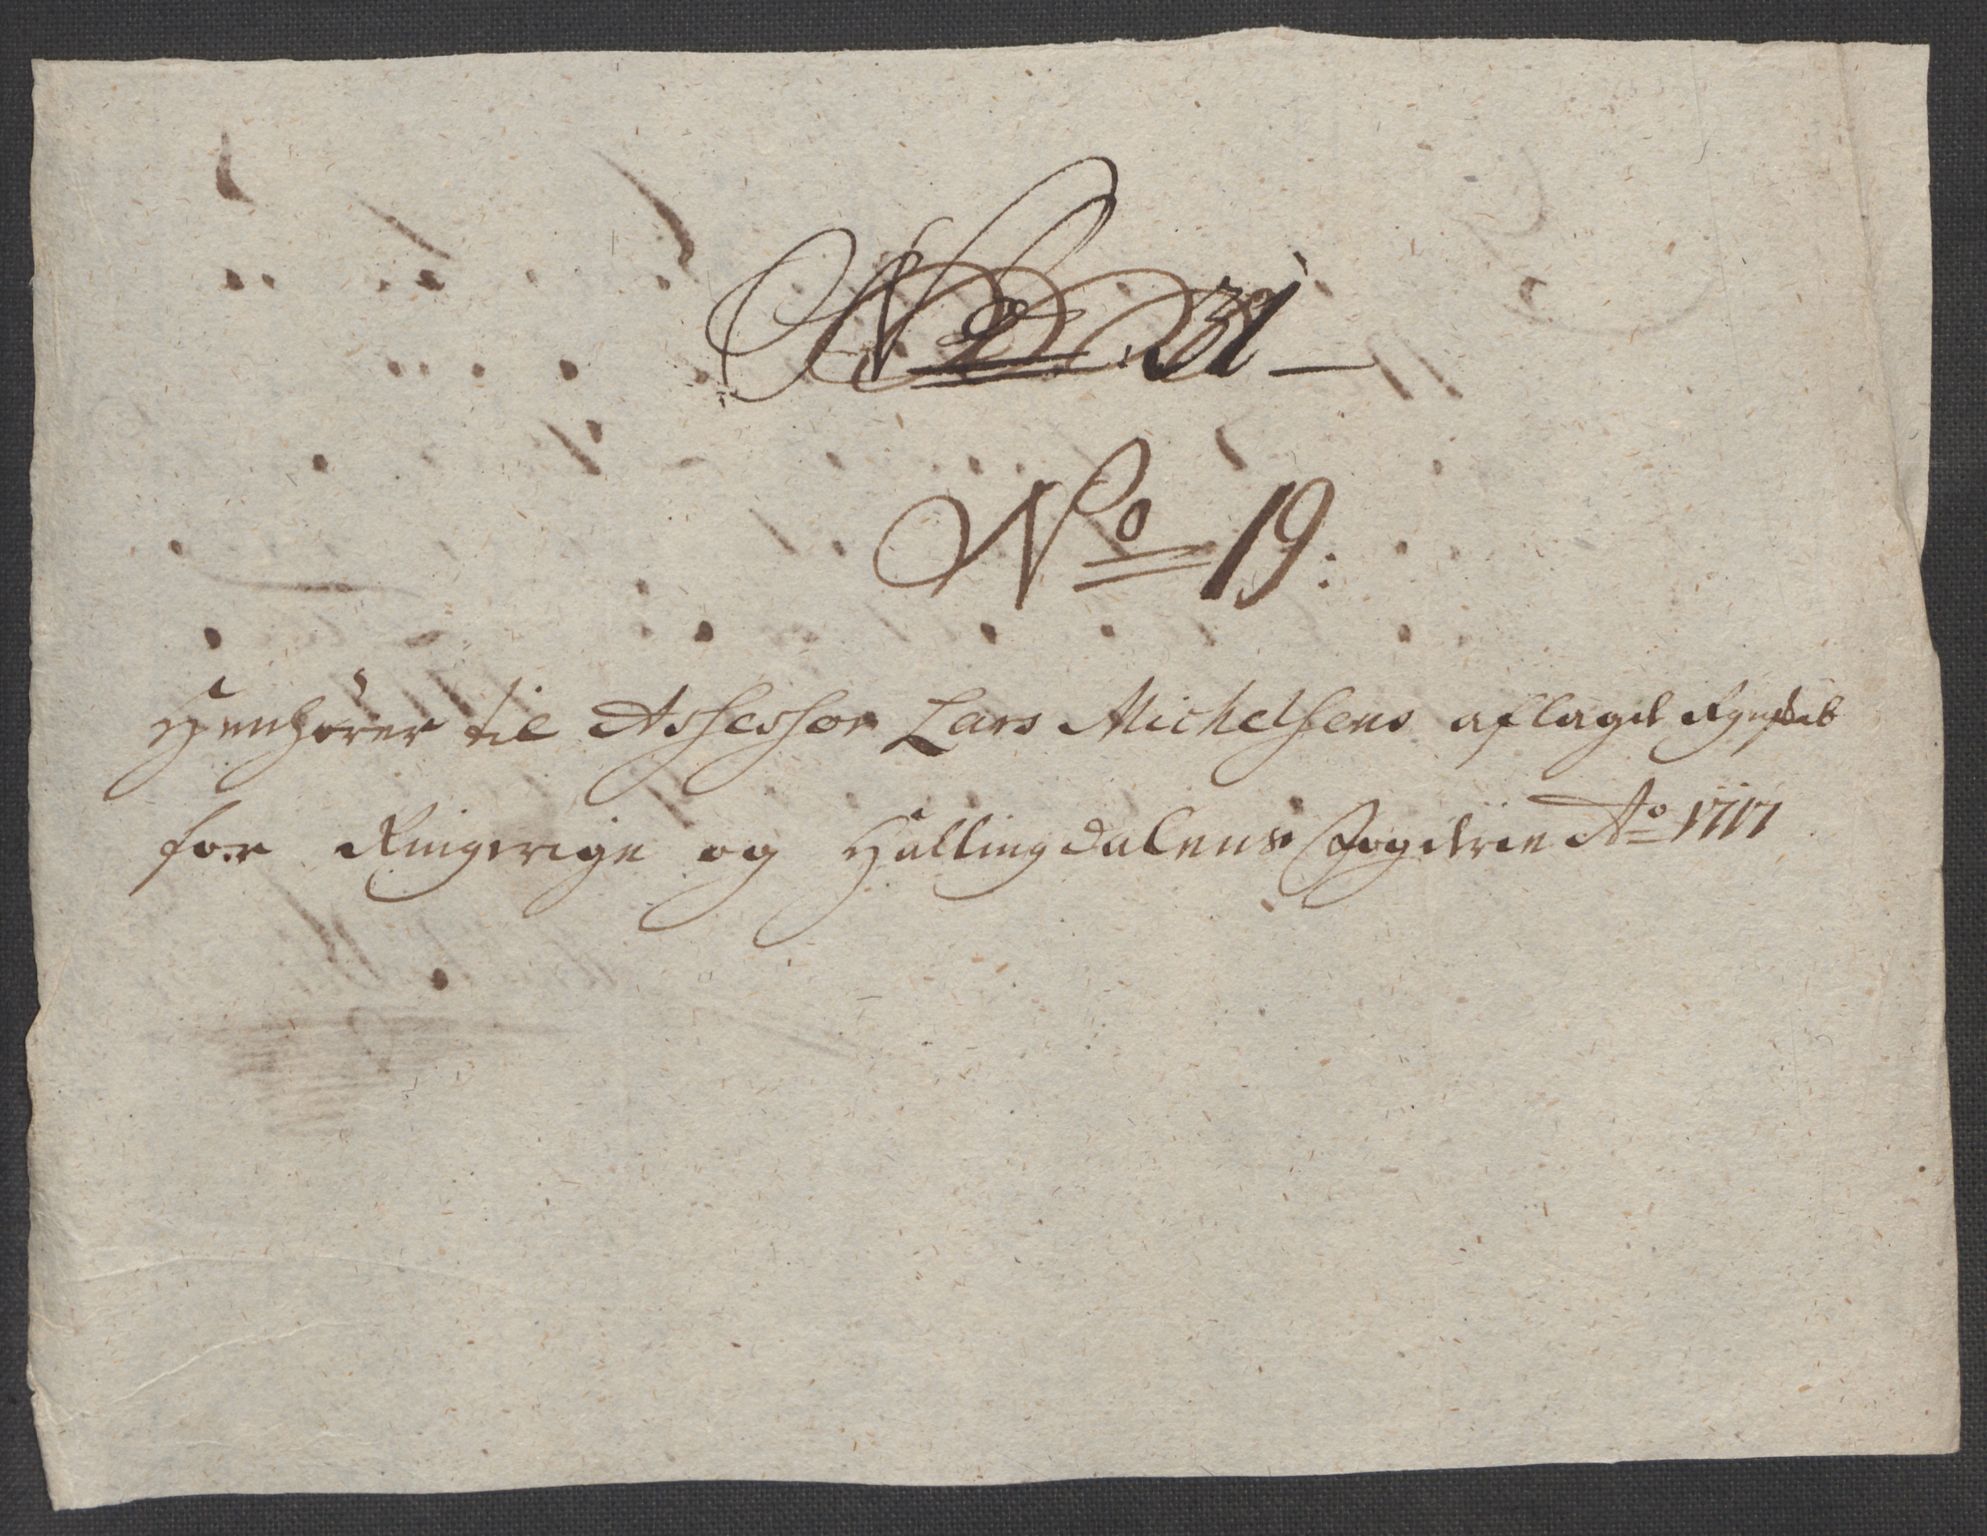 No 31
No 19:
Henhører til Assessor Lars Michelsens aflagde Regnskab
for Ringerige og Hallingdalens Fogderie Ao 1717